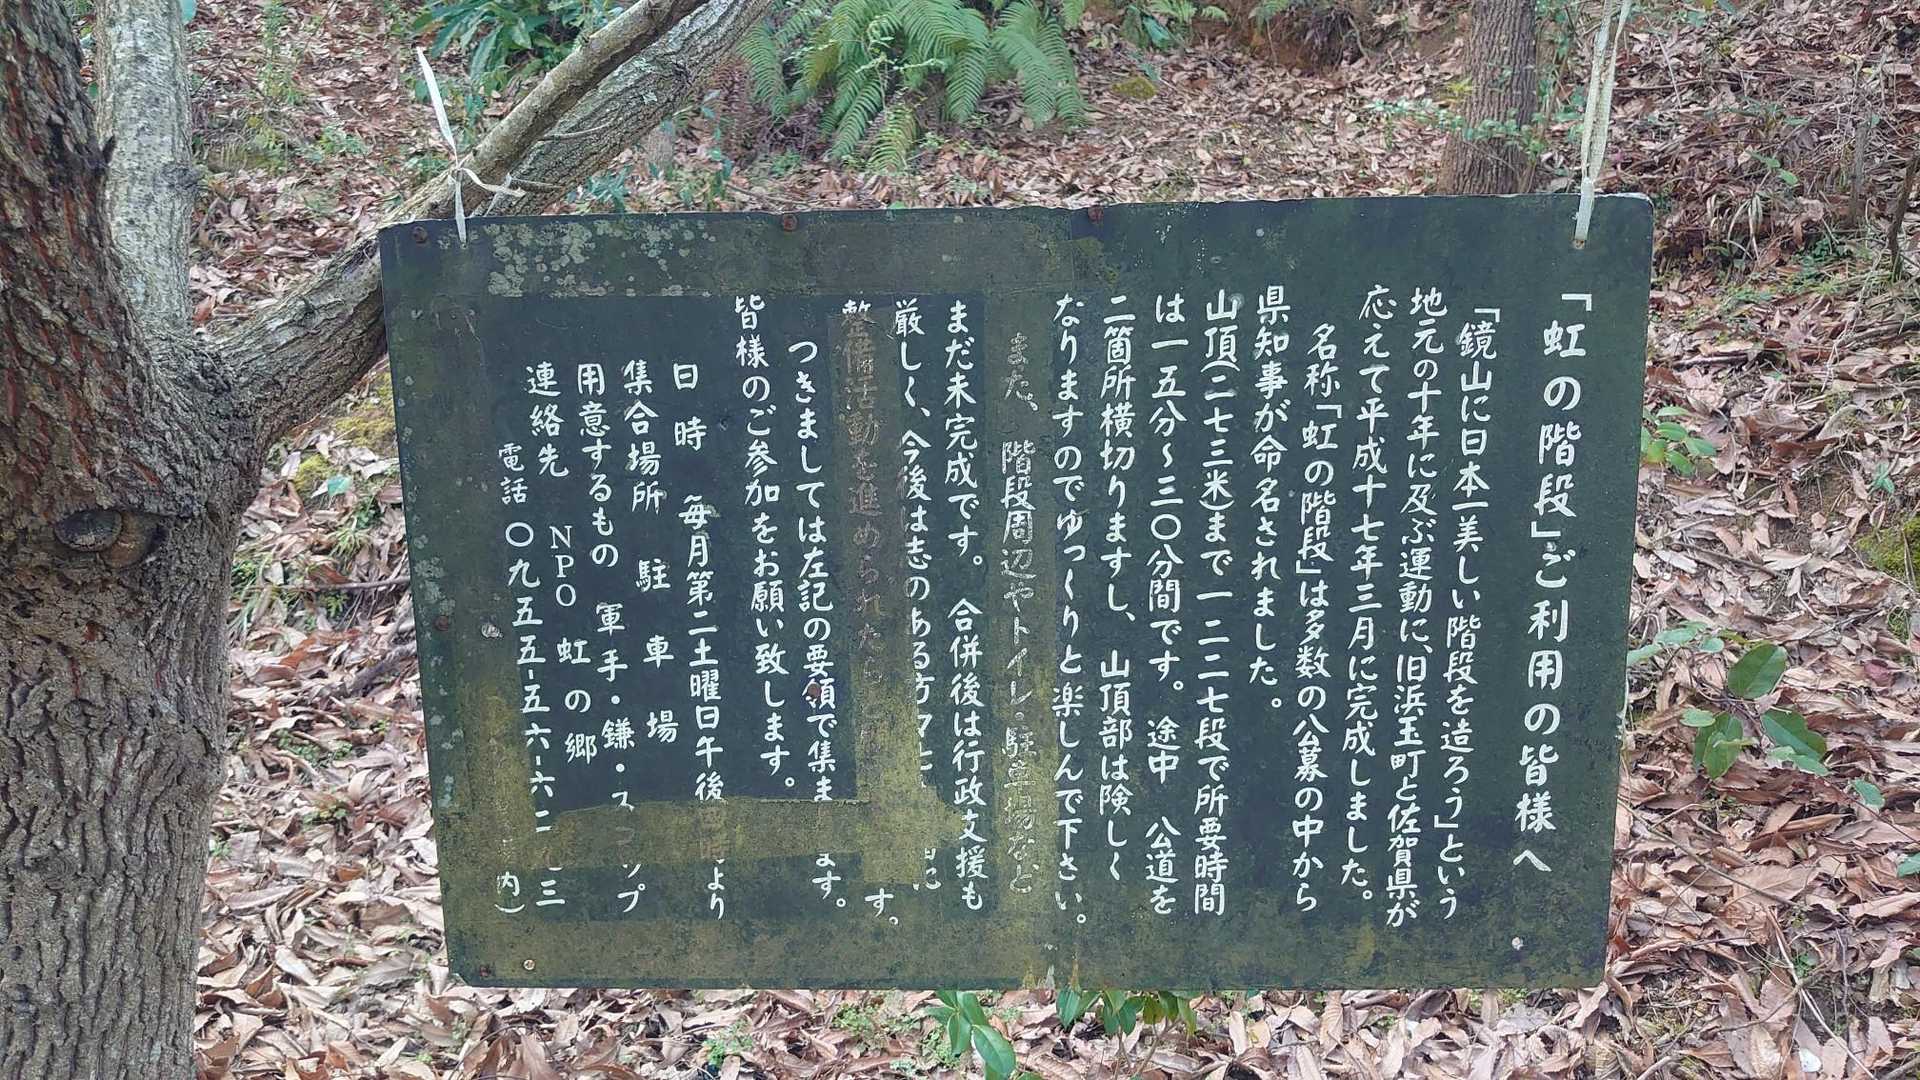 「虹の階段」ご利用の皆様へ
「鏡山に日本一美しい階段を造ろう」という
地元の十年に及ぶ運動に、旧浜玉町と佐賀県が
応えて平成十七年三月に完成しました。
名称「虹の階段」は多数の公募の中から
県知事が命名されました。
山頂(二七三米)まで一二二七段で所要時間
は一五分～三〇分間です。途中 公道を
二箇所横切りますし、山頂部は険しく
なりますのでゆっくりと楽しんで下さい。
また、階段周辺やトイレ・駐車場など
まだ未完成です。合併後は行政支援も
厳しく、今後は志のある方々
整備活動を進められたら す。
つきましては左記の要領で集ま ます。
皆様のご参加をお願い致します。
日時 毎月第二土曜日午後 時より
集合場所 駐車場
用意するもの 軍手・鎌・スコップ
連絡先 NPO 虹の郷
電話 〇九五五-五六-六二 三
内)